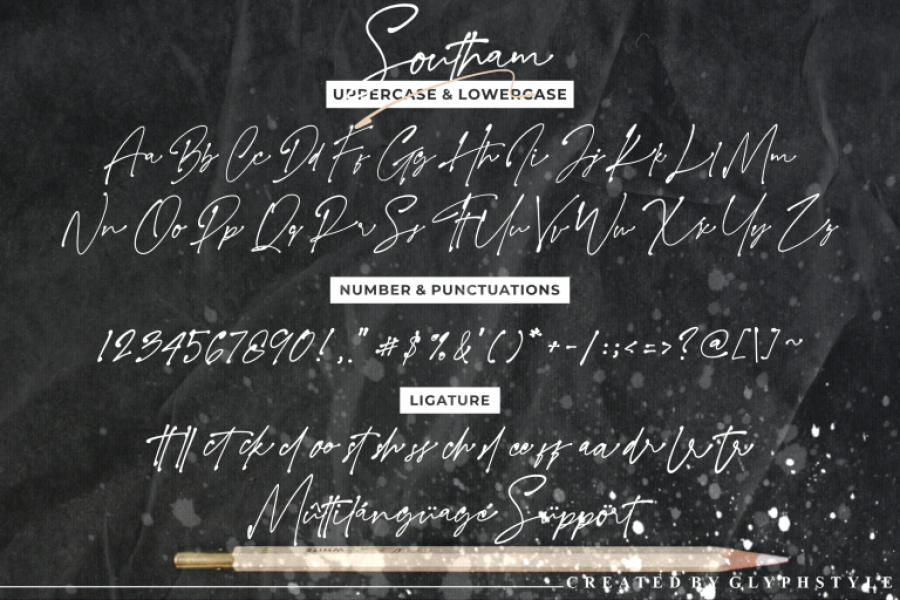 Southam
UPPERCASE & LOWERCASE
Aa Bb Cc Dd Ff Gg Hh Ii Jj Kk Ll Mm
Nn Oo Pp Qq Rr Ss Tt Uu Vv Ww Xx Yy Zz
NUMBER & PUNCTUATIONS
1234567890!,." #$%&'()*+-/:;<=>?@[\]~
LIGATURE
tt ll ct ck cl oo st sh ss ch sl ee ff aa dr lr tr
Múltilánguage Süppört
CREATED BY GLYPHSTYLE